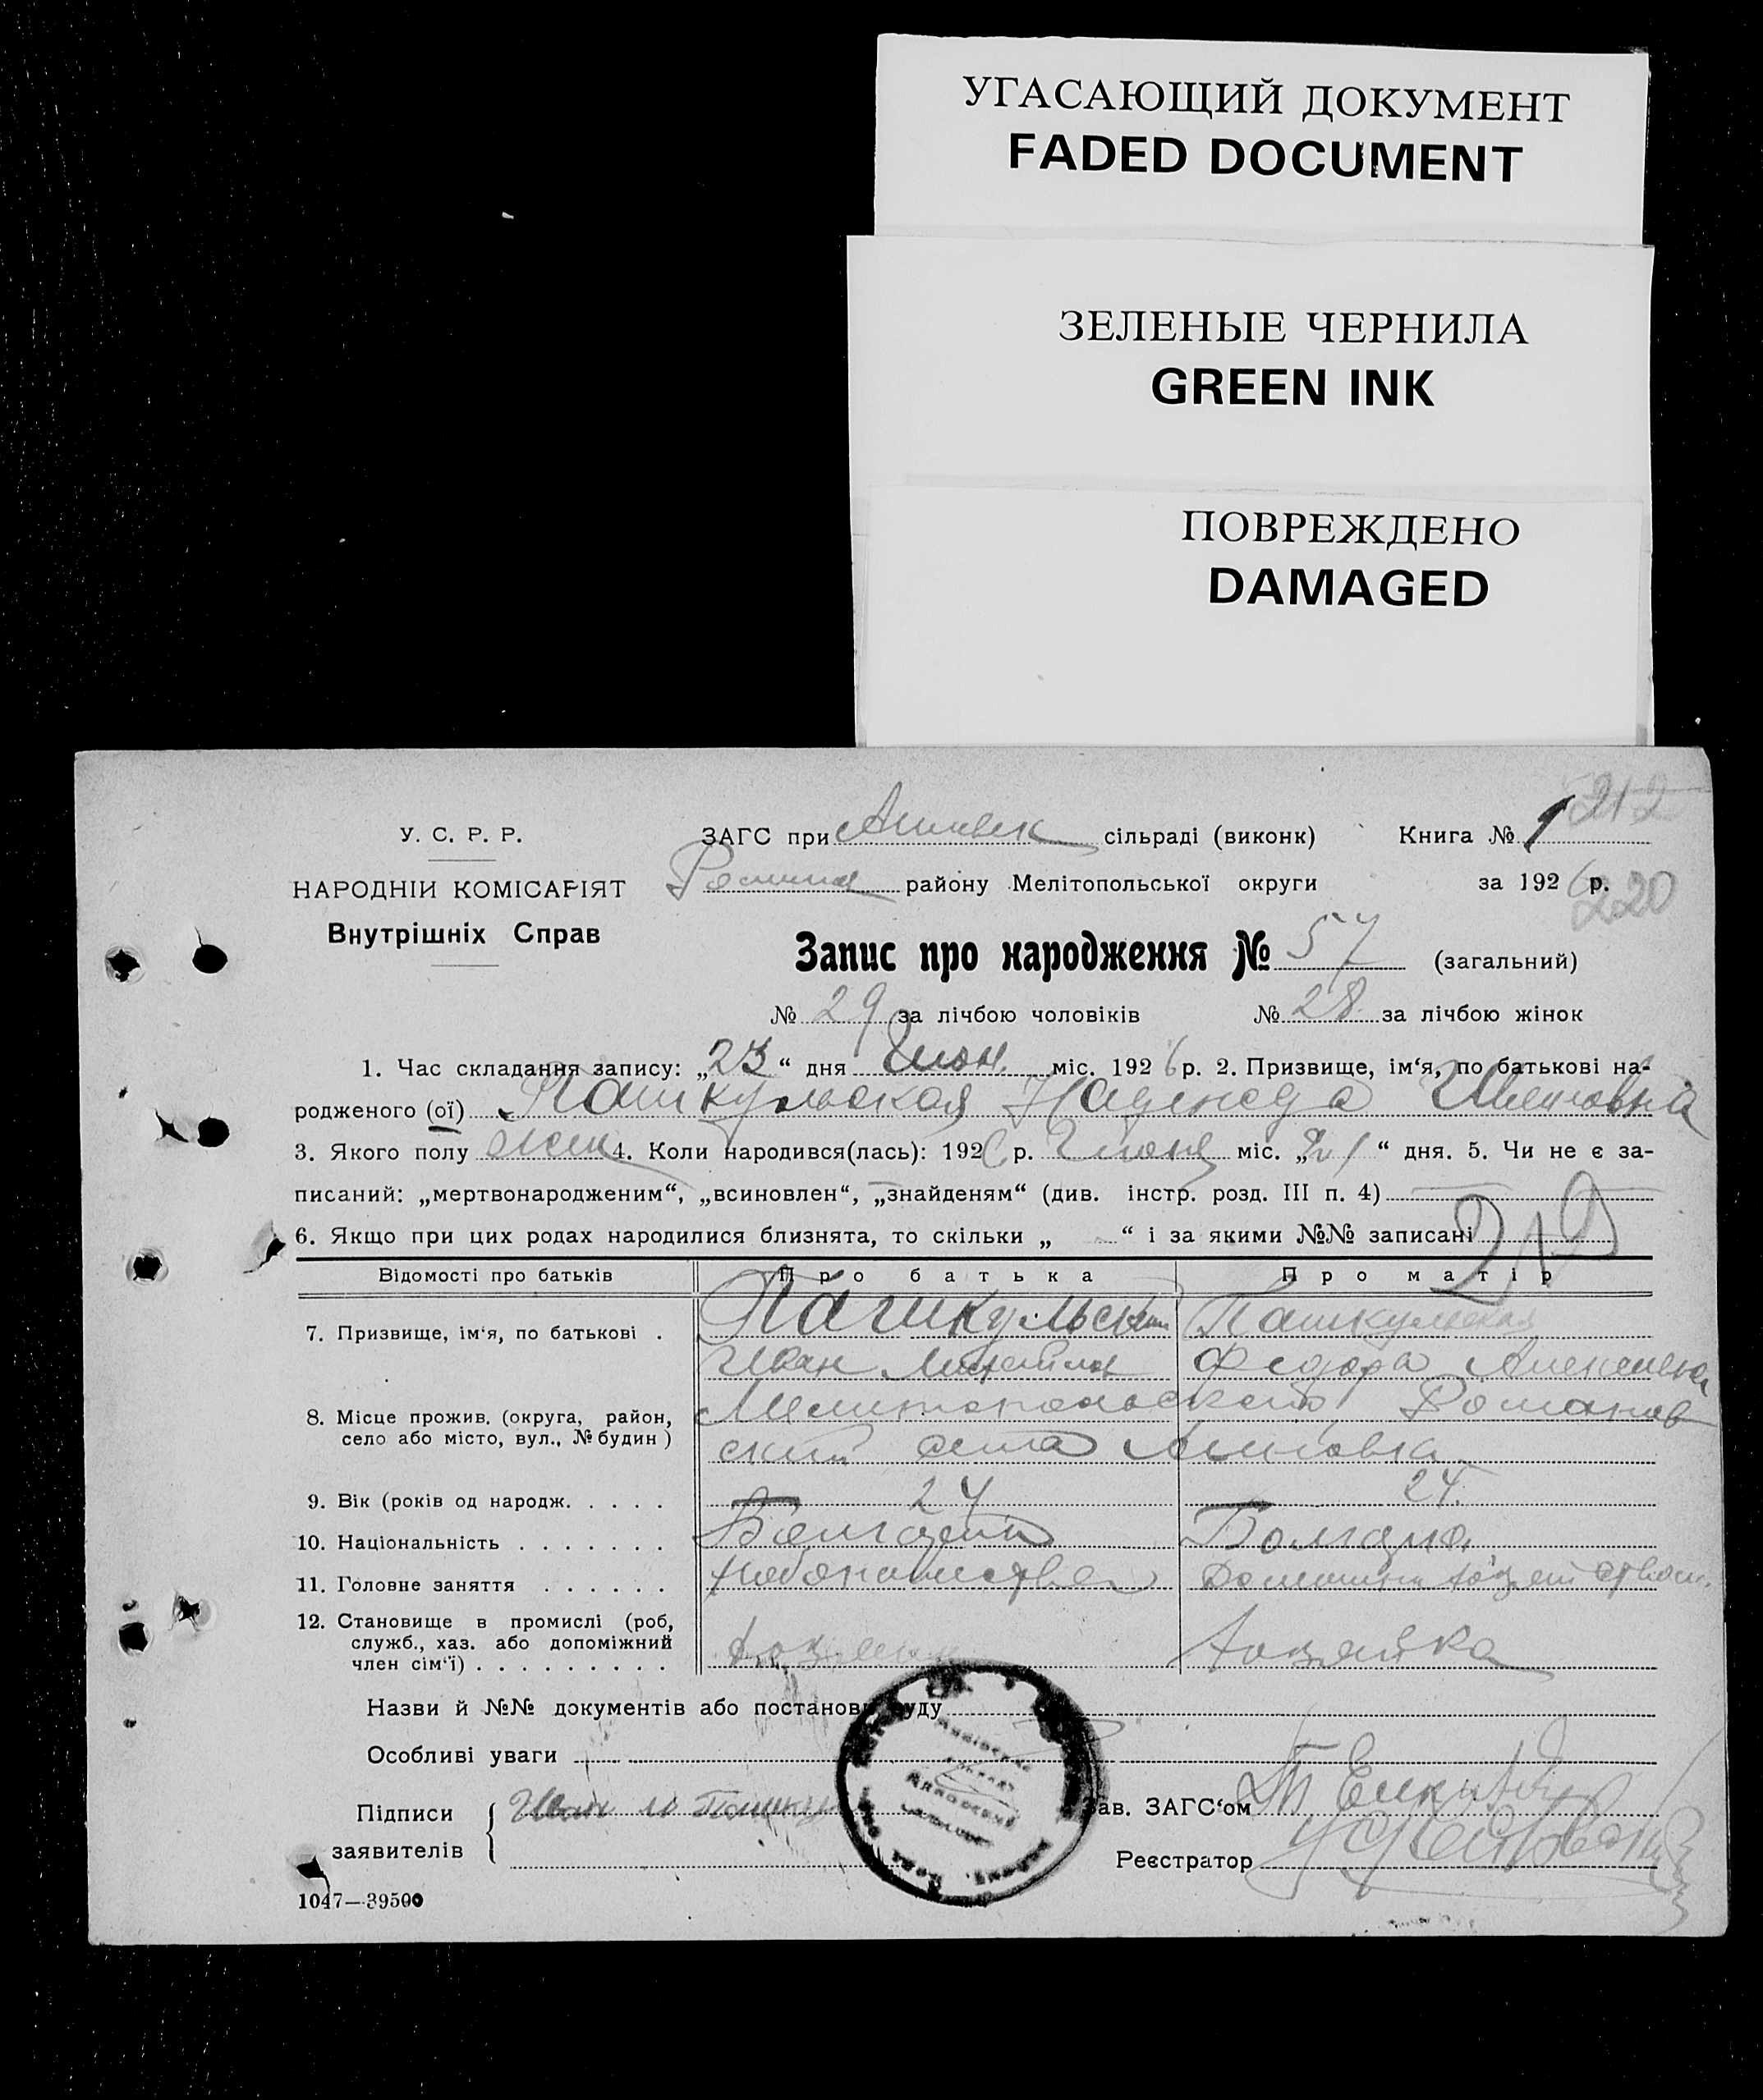 УГАСАЮЩИЙ ДОКУМЕНТ
FADED DOCUMENT
ЗЕЛЕНЫЕ ЧЕРНИЛА
GREEN INK
ПОВРЕЖДЕНО
DAMAGED
212
У. С. Р. Р.
ЗАГС при сільраді (виконк) Книга № 1
НАРОДНІЙ КОМІСАРІЯТ
району Мелітопольської округи за 1926 р.
220
Внутрішніх Справ
Запис про народження № 57 (загальний)
№ 29 за лічбою чоловіків № 28 за лічбою жінок
1. Час складання запису: „23“ дня Июн міс. 1926 р. 2. Призвище, ім‘я, по батькові на-
родженого (ої) Пашкульская Надежда Ивановна
3. Якого полу жен 4. Коли народився(лась): 1926 р. Июня міс. „21“ дня. 5. Чи не є за-
писаний: „мертвонародженим“, „всиновлен“, „знайденям“ (див. інстр. розд. III п. 4)
6. Якщо при цих родах народилися близнята, то скільки „ “ і за якими №№ записані
219
Відомості про батьків Про батька Про матір
7. Призвище, ім‘я, по батькові . Пашкульский Пашкульская
Иван Федора
8. Місце прожив. (округа, район, Мелитопольского Романов
село або місто, вул., № будин) ский села
9. Вік (років од народж. . . . . 24 24.
10. Національність . . . . . . . Болгарин Болгарка
11. Головне заняття . . . . . . Домашн хозяйством
12. Становище в промислі (роб,
служб., хаз. або допоміжний Хозяин Хозяйка
член сім‘ї) . . . . . . . . .
Назви й №№ документів або постанов суду
Особливі уваги
Підписи Иван Зав. ЗАГС‘ом
заявителів
Реєстратор
1047—39500